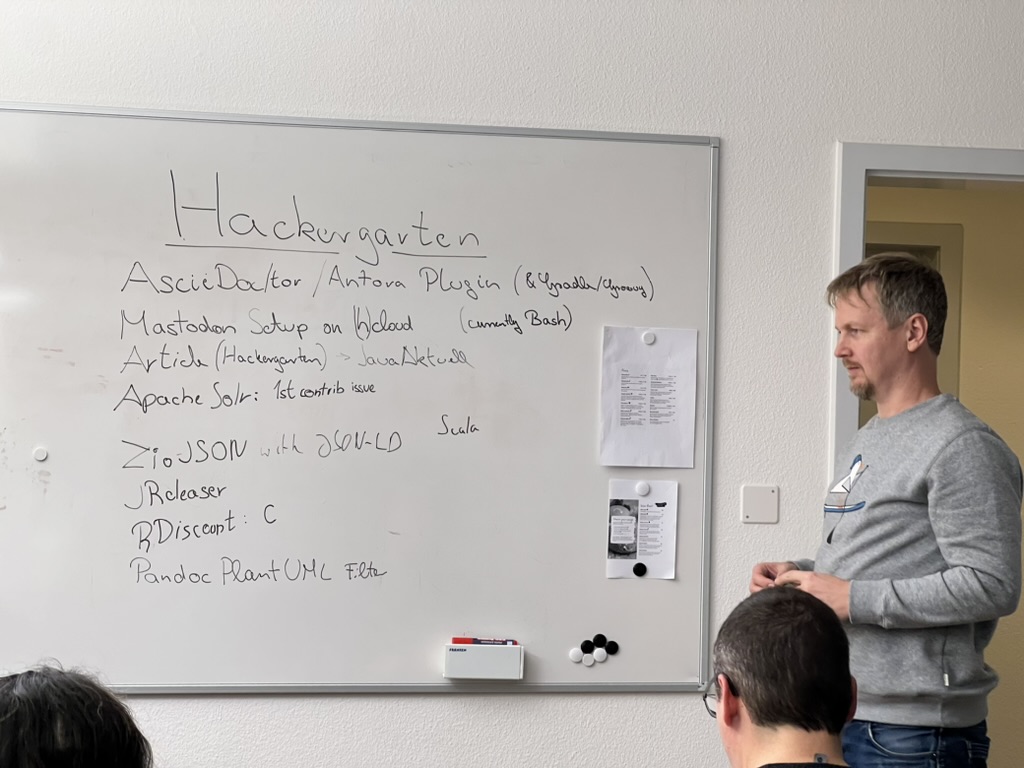 Hackergarten
AsciiDoctor / Antora Plugin (& Gradle/Groovy)
Mastodon Setup on (h)cloud (currently Bash)
Article (Hackergarten) -> JavaAktuell
Apache Solr: 1st contrib issue
Zio-JSON with JSON-LD Scala
JReleaser
RDiscount: C
Pandoc PlantUML Filter